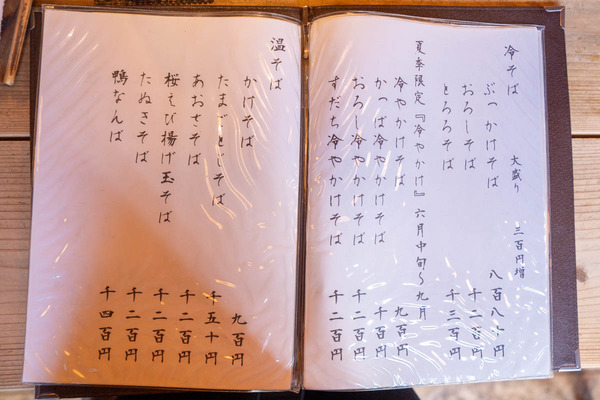 冷そば 大盛り 三百円増
ぶっかけそば 八百八十円
おろしそば 千二百円
とろろそば 千三百円
夏季限定『冷やかけ』六月中旬〜九月
冷やかけそば 九百円
かっぱ冷やかけそば 千百円
おろし冷やかけそば 千二百円
すだち冷やかけそば 千二百円
温そば
かけそば 九百円
たまごとじそば 千五十円
あおさそば 千二百円
桜えび揚げ玉そば 千二百円
たぬきそば 千二百円
鴨なんば 千四百円